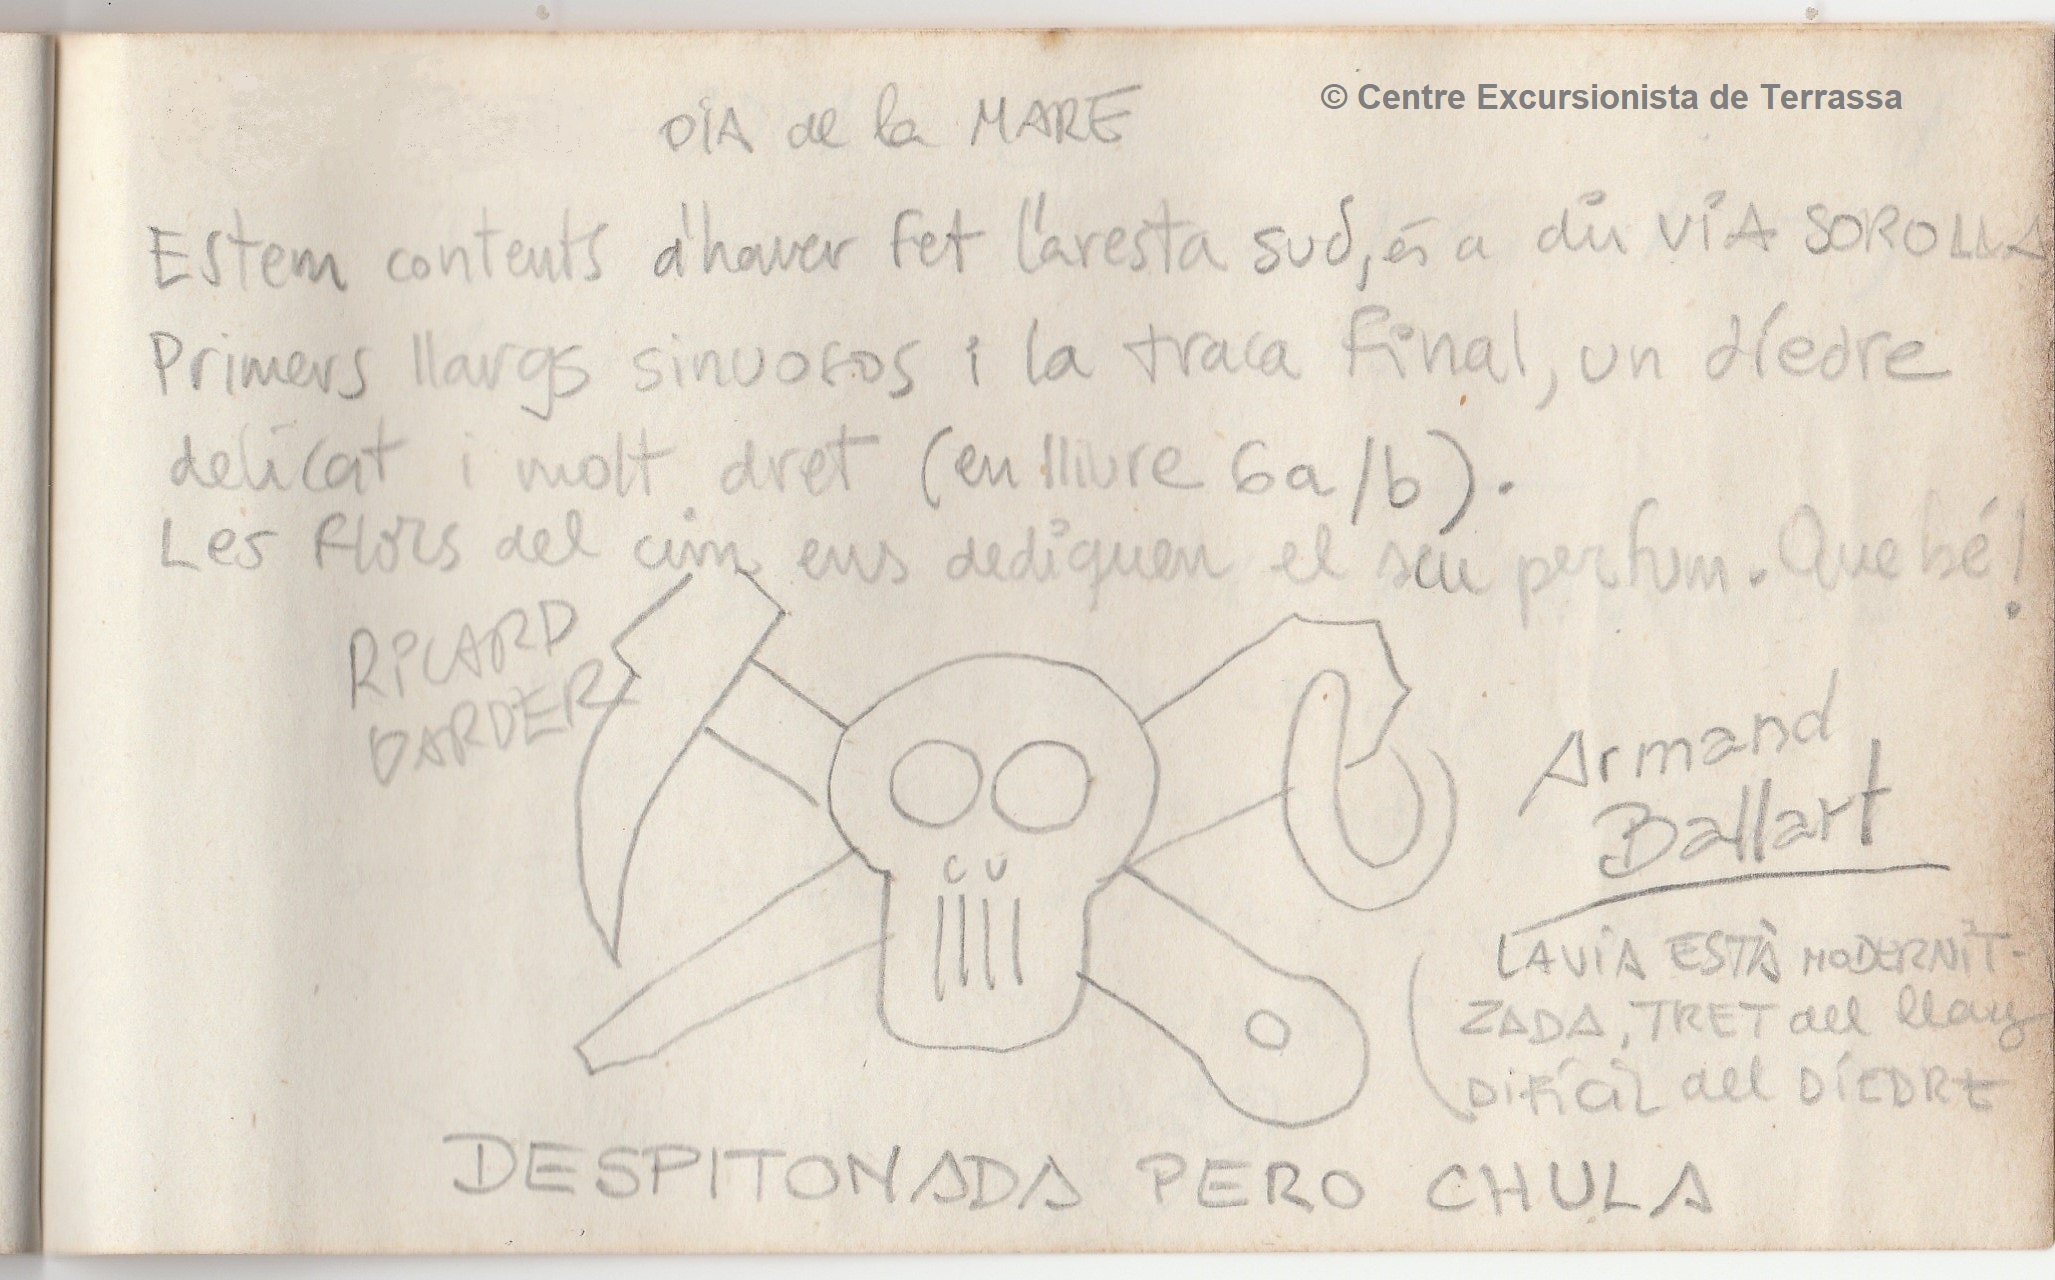 © Centre Excursionista de Terrassa
DIA de la MARE
Estem contents d'haver fet l'aresta sud, és a dir VIA SOROLLA
Primers llargs sinuosos i la traca final, un díedre
delicat i molt dret (en lliure 6a/b).
Les flors del cim ens dediquen el seu perfum. Que bé!
RICARD
DARDER
Armand
Ballart
LA VIA ESTÀ MODERNIT-
ZADA, TRET del llarg
DIFÍCIL del DÍEDRE
DESPITONADA PERO CHULA